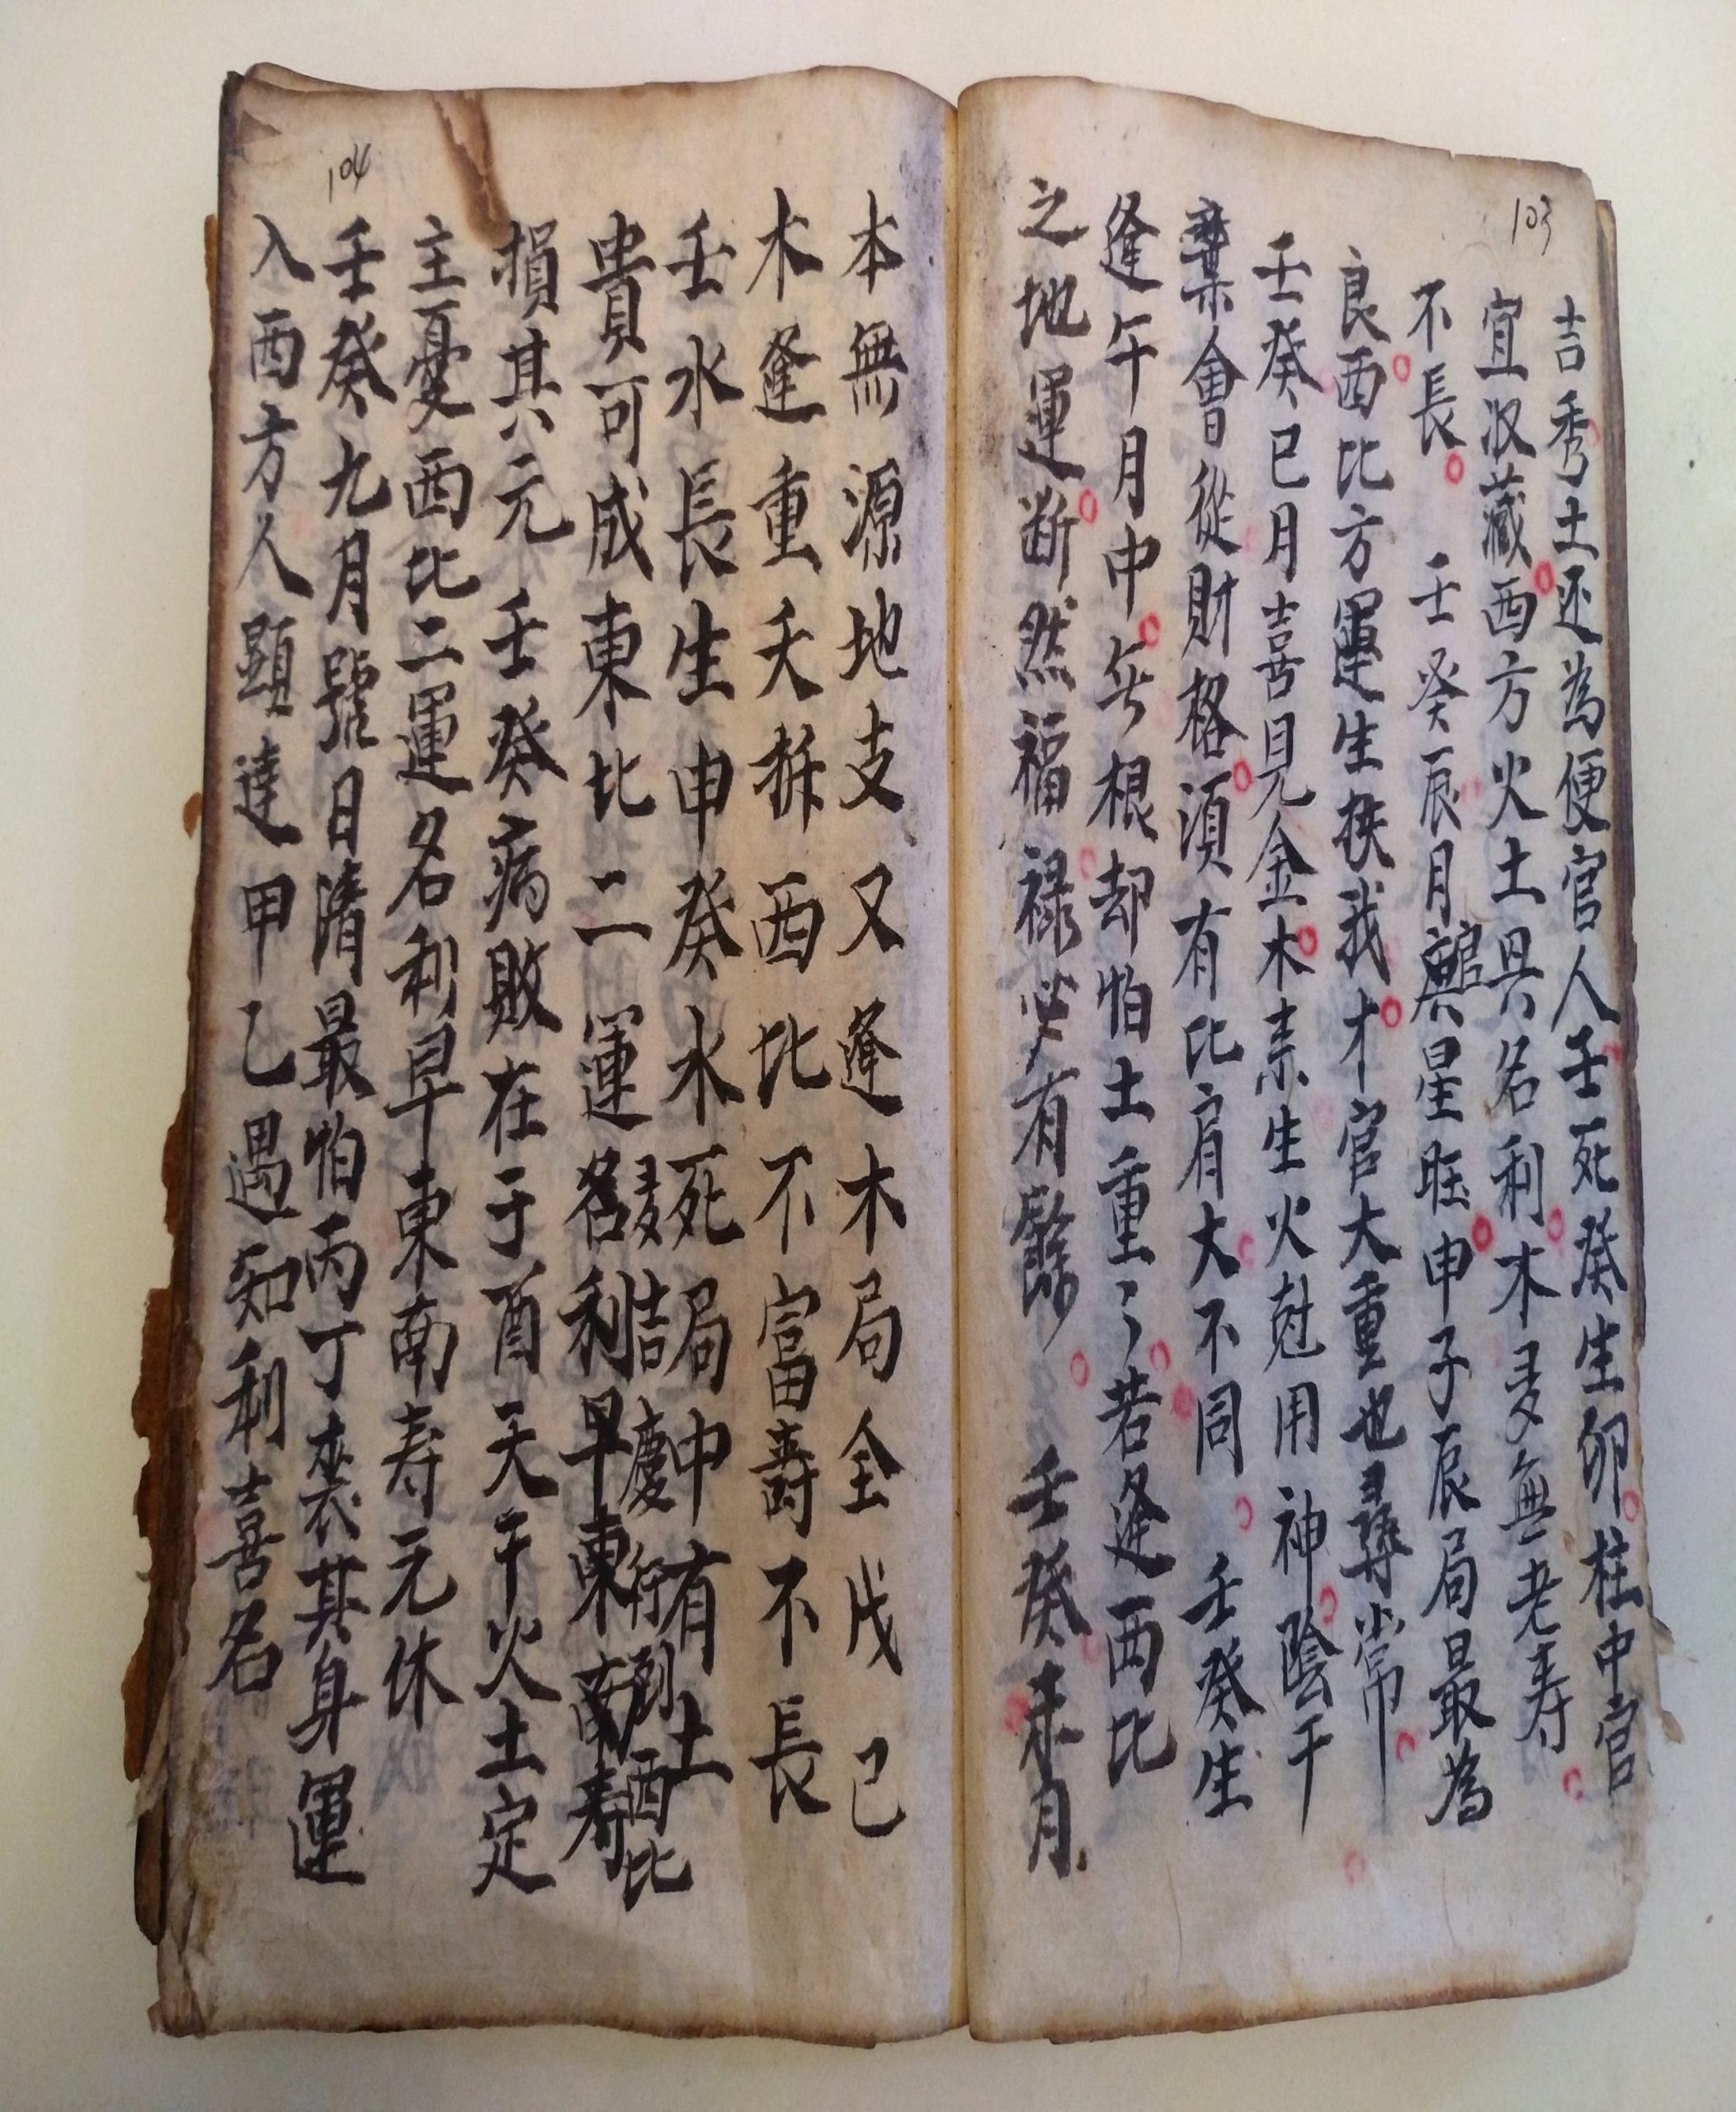 103
吉秀土还為便官人壬死癸生卯柱中官
宜汲藏西方火土具名利木多無老寿
不長 壬癸辰月官星旺申子辰局最為
良西比方運生扶我才官大重也尋常
壬癸巳月喜見金木素生火尅用神陰干
棄會從財格須有比肩大不同 壬癸生
逢午月中 根却怕土重〻若逢西比
之地運断然福禄必有餘 壬癸未月
本無源地支又逢木局全戊己
木逢重夭拆西比不富壽不長
壬水長生申癸水死局中有土
貴可成東比二運名利早東南寿
多吉慶行到西比
損其元 壬癸病敗在于酉天干火土定
主憂西比二運名利早東南寿元休
壬癸九月號日清最怕丙丁來其身運
入西方人顕達甲乙遇知利喜名
104